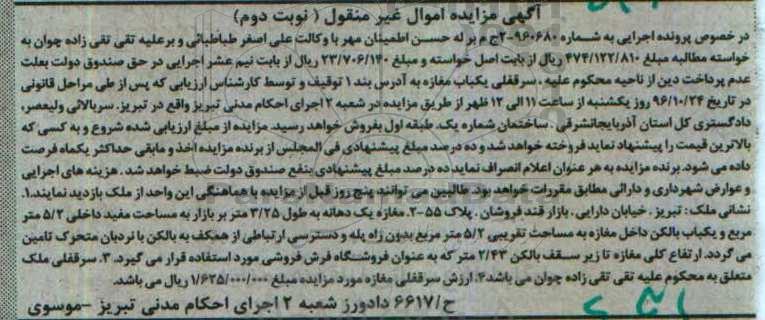 آگهی مزایده اموال غیر منقول ( نوبت دوم)
در خصوص پرونده اجرایی به شماره ۹۶۰۶۸۰-۲ج م بر له حسن اطمینان مهر با وکالت علی اصغر طباطبائی و برعلیه تقی تقی زاده چوان به
خواسته مطالبه مبلغ ۴۷۴/۱۲۲/۸۱۰ ریال از بابت اصل خواسته و مبلغ ۲۳/۷۰۶/۱۴۰ ریال از بابت نیم عشر اجرایی در حق صندوق دولت بعلت
عدم پرداخت دین از ناحیه محکوم علیه ، سرقفلی یکباب مغازه به آدرس بند ۱ توقیف و توسط کارشناس ارزیابی که پس از طی مراحل قانونی
در تاریخ ۹۶/۱۰/۲۴ روز یکشنبه از ساعت ۱۱ الی ۱۲ ظهر از طریق مزایده در شعبه ۲ اجرای احکام مدنی تبریز واقع در تبریز، سربالائی ولیعصر،
دادگستری کل استان آذربایجانشرقی ، ساختمان شماره یک، طبقه اول بفروش خواهد رسید. مزایده از مبلغ ارزیابی شده شروع و به کسی که
بالاترین قیمت را پیشنهاد نماید فروخته خواهد شد و ده درصد مبلغ پیشنهادی فی المجلس از برنده مزایده اخذ و مابقی حداکثر یکماه فرصت
داده می شود. برنده مزایده به هر عنوان اعلام انصراف نماید ده درصد مبلغ پیشنهادی بنفع صندوق دولت ضبط خواهد شد . هزینه های اجرایی
و عوارض شهرداری و دارائی مطابق مقررات خواهد بود. طالبین می توانند پنج روز قبل از مزایده با هماهنگی این واحد از ملک بازدید نمایند.۱.
نشانی ملک : تبریز ، خیابان دارایی، بازار قند فروشان ، پلاک ۵۵-۲. مغازه یک دهانه به طول ۳/۲۵ متر بر بازار به مساحت مفید داخلی ۵/۲ متر
مربع و یکباب بالکن داخل مغازه به مساحت تقریبی ۵/۲ متر مربع بدون راه پله و دسترسی ارتباطی از همکف به بالکن با نردبان متحرک تامین
می گردد. ارتفاع کلی مغازه تا زیر سقف بالکن ۲/۴۳ متر که به عنوان فروشگاه فرش فروشی مورد استفاده قرار می گیرد. ۳. سرقفلی ملک
متعلق به محکوم علیه تقی تقی زاده چوان می باشد۴. ارزش سرقفلی مغازه مورد مزایده مبلغ ۱/۶۲۵/۰۰۰/۰۰۰ ریال می باشد.
ح/۶۶۱۷ دادورز شعبه ۲ اجرای احکام مدنی تبریز –موسوی